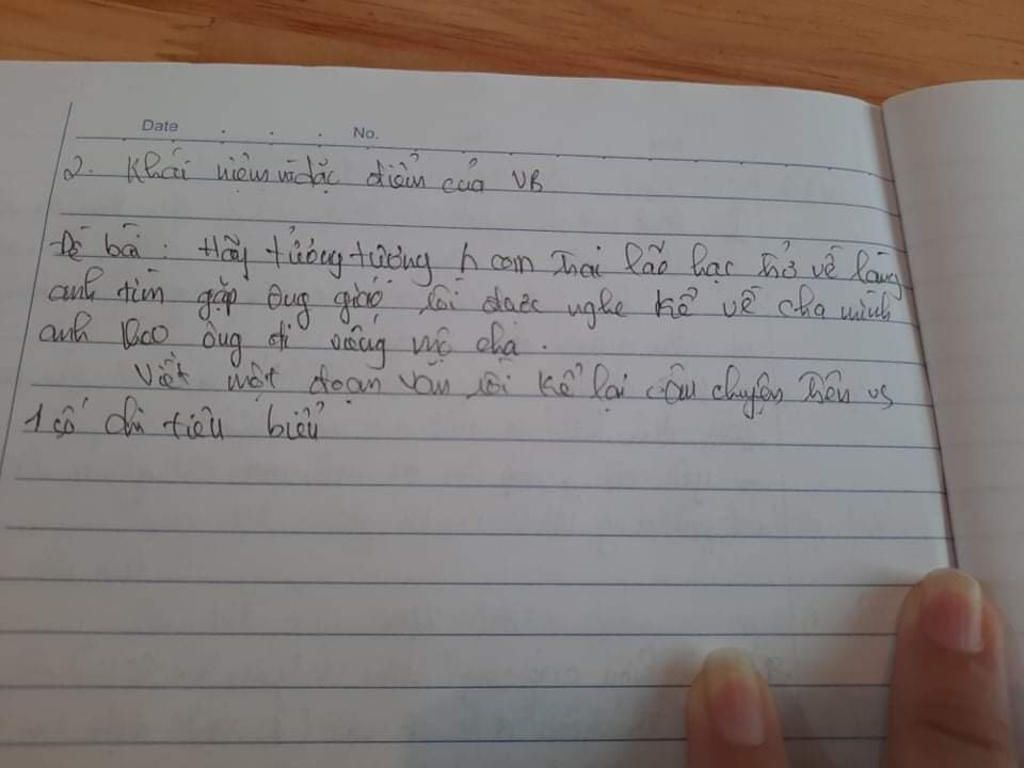 Date . . . No.
2. Khái niệm và đặc điểm của VB
Đề bài : Hãy tưởng tượng h con trai lão hạc trở về làng
anh tìm gặp ông giáo rồi được nghe kể về cha mình
anh theo ông đi viếng mộ cha .
Viết một đoạn văn rồi kể lại câu chuyện trên vs
1 số chi tiêu biểu